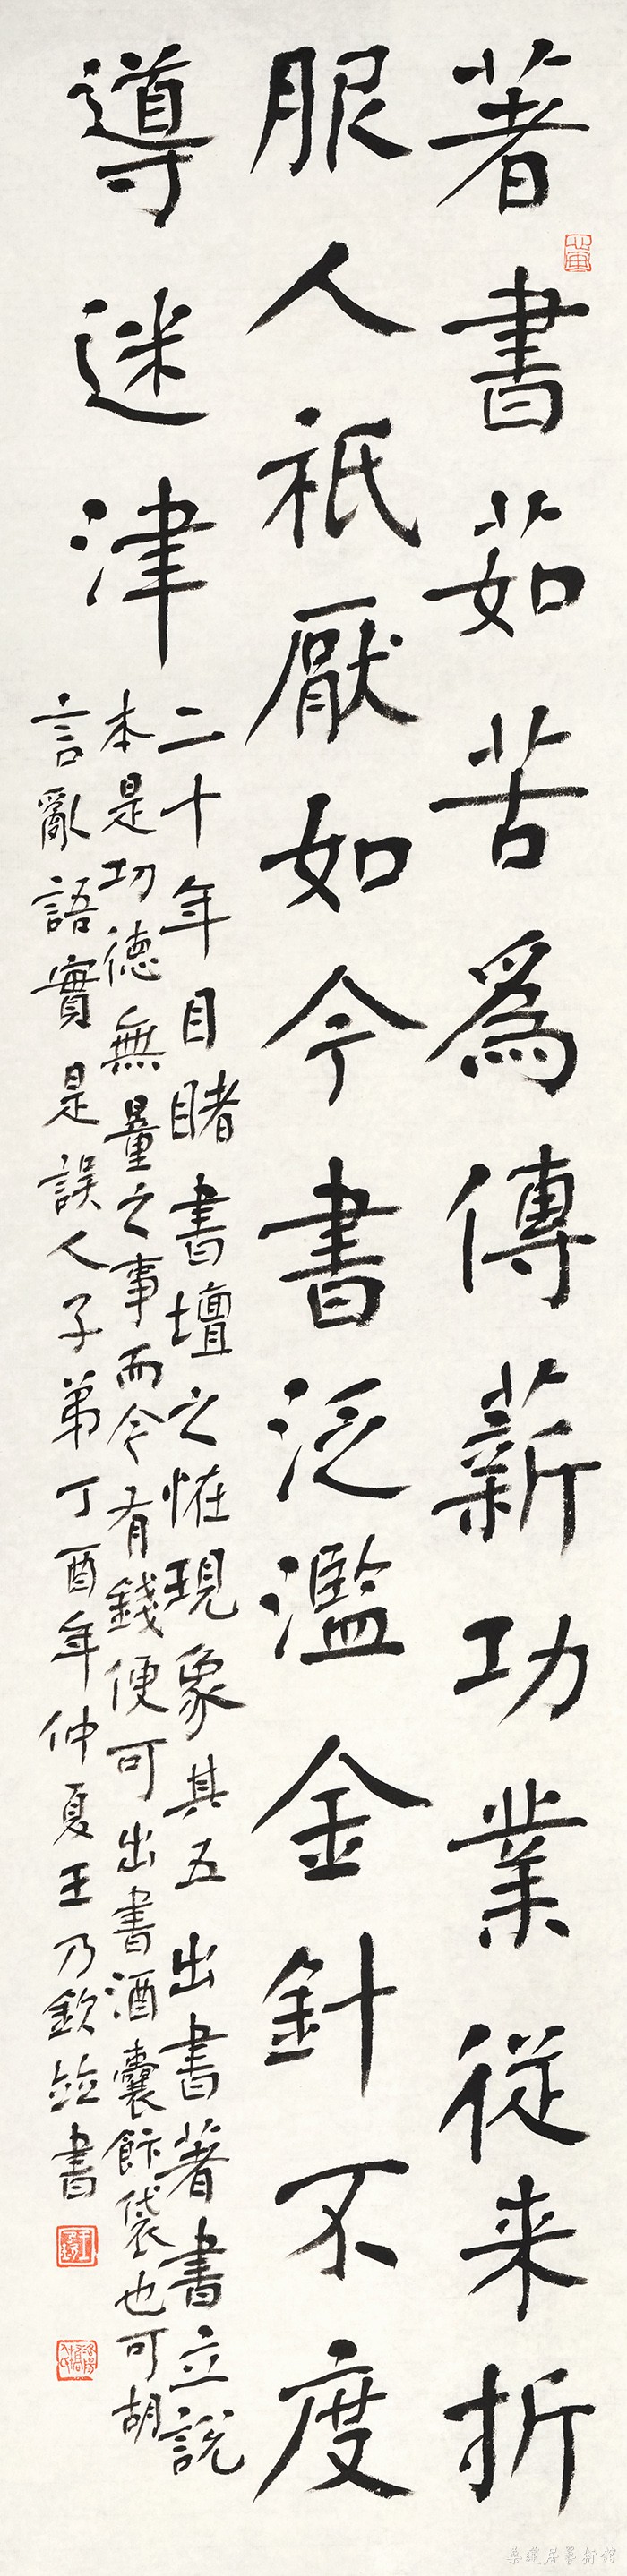 著書茹苦爲傳薪功業從来折
服人祇厭如今書泛濫金針不度
導迷津
二十年目睹書壇之怪現象其五出書著書立說
本是功德無量之事而今有錢便可出書酒囊飰袋也可胡
言亂語實是誤人子弟丁酉年仲夏王乃欽竝書